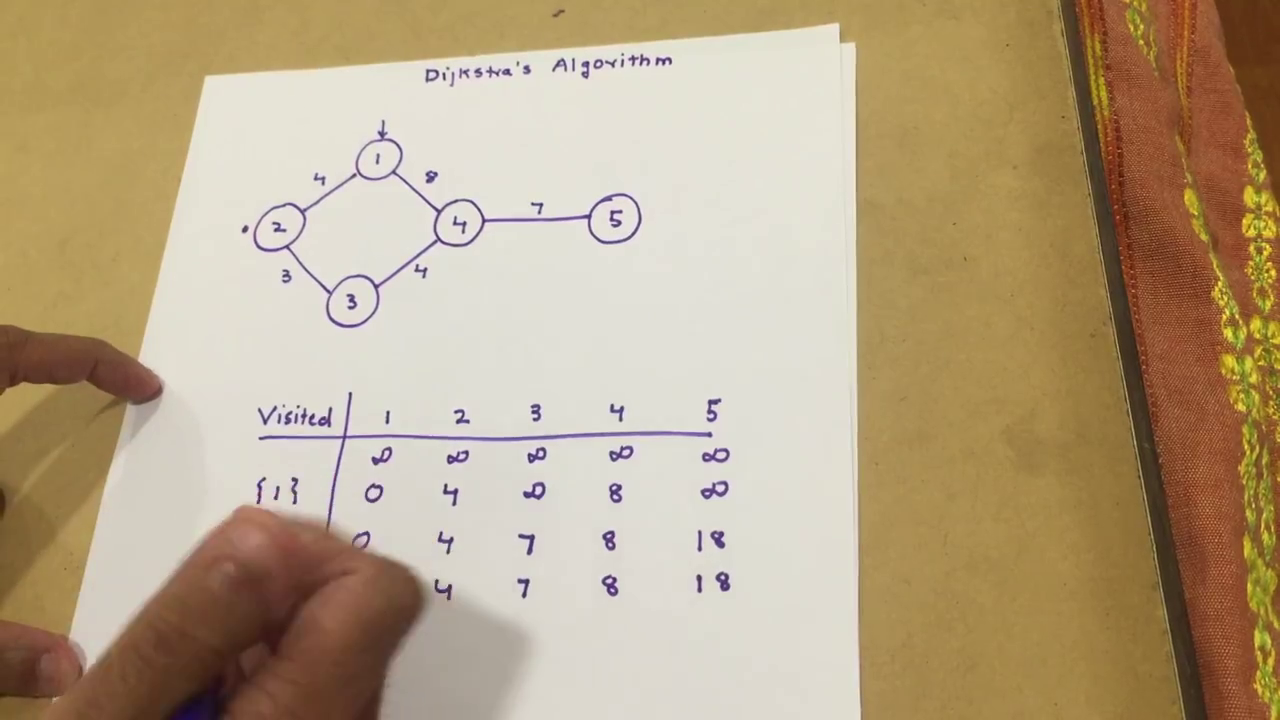 Dijkstra's Algorithm
1
4 8
2 4 7 5
3 4
3
Visited 1 2 3 4 5
∞ ∞ ∞ ∞ ∞
{1} 0 4 ∞ 8 ∞
0 4 7 8 18
4 7 8 18